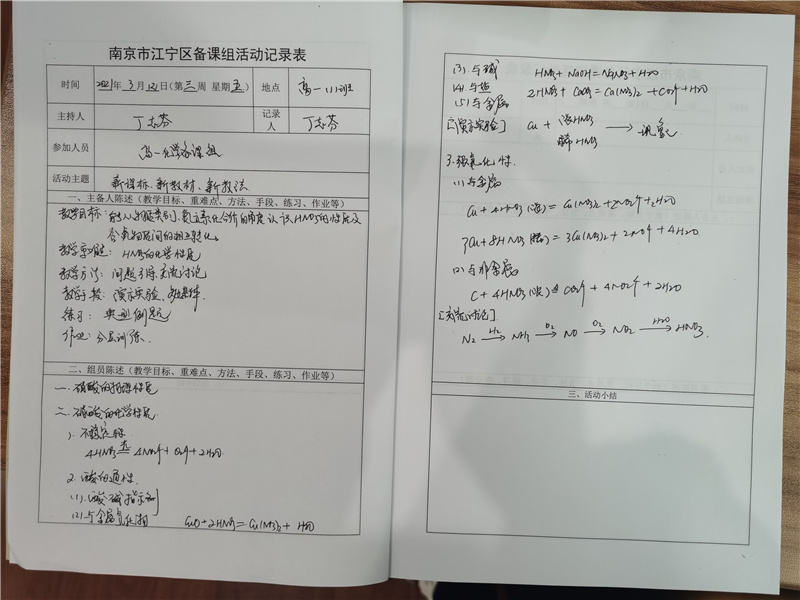 南京市江宁区备课组活动记录表
时间 2021年3月12日(第三周 星期五) 地点 高一(1)班
主持人 丁志芬 记录人 丁志芬
参加人员 高一化学备课组
活动主题 新课标、新教材、新教法
一、主备人陈述(教学目标、重难点、方法、手段、练习、作业等)
教学目标:能从物质类别、氮元素化合价的角度认识HNO3的性质及
含氮物质间的相互转化。
教学重难点:HNO3的化学性质
教学方法:问题引导、交流讨论
教学手段:演示实验、
练习:典型例题
作业:分层训练.
二、组员陈述(教学目标、重难点、方法、手段、练习、作业等)
一.硝酸的物理性质
二.硝酸的化学性质
1.不稳定性
4HNO3 ≜ 4NO2↑+O2↑+2H2O
2.酸的通性.
(1).酸碱指示剂
(2).与金属氧化物 CuO+2HNO3=Cu(NO3)2+H2O
(3).与碱 HNO3+NaOH=NaNO3+H2O
(4).与盐 2HNO3+CaCO3=Ca(NO3)2+CO2↑+H2O
(5).与金属
[演示实验] Cu + 浓HNO3
稀HNO3 → 现象
3.强氧化性.
(1)与金属
Cu+4HNO3(浓)=Cu(NO3)2+2NO2↑+2H2O
3Cu+8HNO3(稀)=3Cu(NO3)2+2NO↑+4H2O
(2)与非金属
C+4HNO3(浓)≜CO2↑+4NO2↑+2H2O
[交流讨论]
N2 —H2→ NH3 —O2→ NO —O2→ NO2 —H2O→ HNO3.
三、活动小结